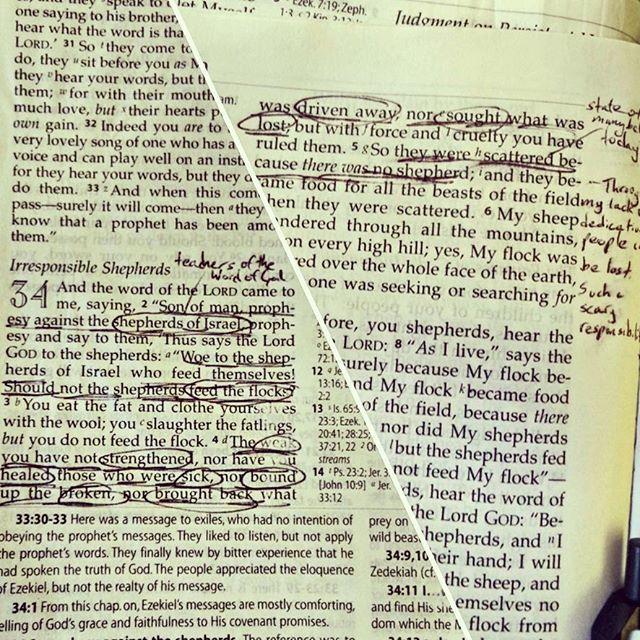 one saying to his brother,
hear what the word is tha
LORD.' 31 So they come to
do, they sit before you as
they hear your words, but t
them; for with their mouth
much love, but their hearts p
own gain. 32 Indeed you are to
very lovely song of one who has a
voice and can play well on an inst
for they hear your words, but they d
do them. 33 And when this com
pass—surely it will come—then they
know that a prophet has been amo
them."
Irresponsible Shepherds
teachers of the
Word of God
34 And the word of the LORD came to
me, saying, 2 "Son of man, proph-
esy against the shepherds of Israel, proph-
esy and say to them, 'Thus says the Lord
GOD to the shepherds: a "Woe to the shep-
herds of Israel who feed themselves!
Should not the shepherds feed the flocks?
3 b You eat the fat and clothe yourselves
with the wool; you c slaughter the fatlings,
but you do not feed the flock. 4 d The weak
you have not strengthened, nor have you
healed those who were sick, nor bound
up the broken, nor brought back what
33:30-33 Here was a message to exiles, who had no intention of
obeying the prophet's messages. They liked to listen, but not apply
the prophet's words. They finally knew by bitter experience that he
had spoken the truth of God. The people appreciated the eloquence
of Ezekiel, but not the realty of his message.
34:1 From this chap. on, Ezekiel's messages are mostly comforting,
elling of God's grace and faithfulness to His covenant promises.
12
13:16;
2:2
13 Is. 65:
23:3; Ezek.
20:41; 28:25;
37:21, 22
streams
14 Ps. 23:2; Jer. 3
[John 10:9] Jer.
33:12
prey on
wild beas
34:9,10
Zedekiah (cf.
34:11
and find His she
dom which the M
Ezek. 7:19; Zeph.
Judgment on
was driven away, nor e sought what was
lost; but with f force and cruelty you have
ruled them. 5 g So they were h scattered be-
cause there was no shepherd; i and they be-
ame food for all the beasts of the field
hen they were scattered. 6 My sheep
ndered through all the mountains,
on every high hill; yes, My flock was
red over the whole face of the earth,
one was seeking or searching for
state of
many
today
my lack
dedication
people
be lost.
Such a
scary
responsibil
fore, you shepherds, hear the
LORD: 8 "As I live," says the
urely because My flock be-
nd My flock k became food
of the field, because there
nor did My shepherds
l but the shepherds fed
not feed My flock"—
ds, hear the word of
the Lord GOD: "Be-
hepherds, and n I
eir hand; I will
the sheep, and
emselves no
flock from